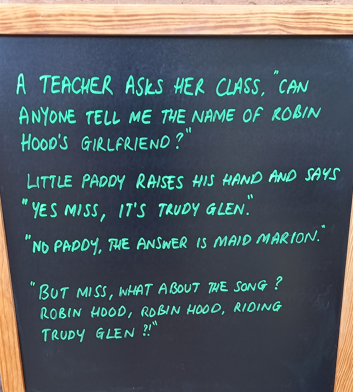 A TEACHER ASKS HER CLASS, "CAN
ANYONE TELL ME THE NAME OF ROBIN
HOOD'S GIRLFRIEND?"
LITTLE PADDY RAISES HIS HAND AND SAYS
"YES MISS, IT'S TRUDY GLEN."
"NO PADDY, THE ANSWER IS MAID MARION."
"BUT MISS, WHAT ABOUT THE SONG?
ROBIN HOOD, ROBIN HOOD, RIDING
TRUDY GLEN?!"